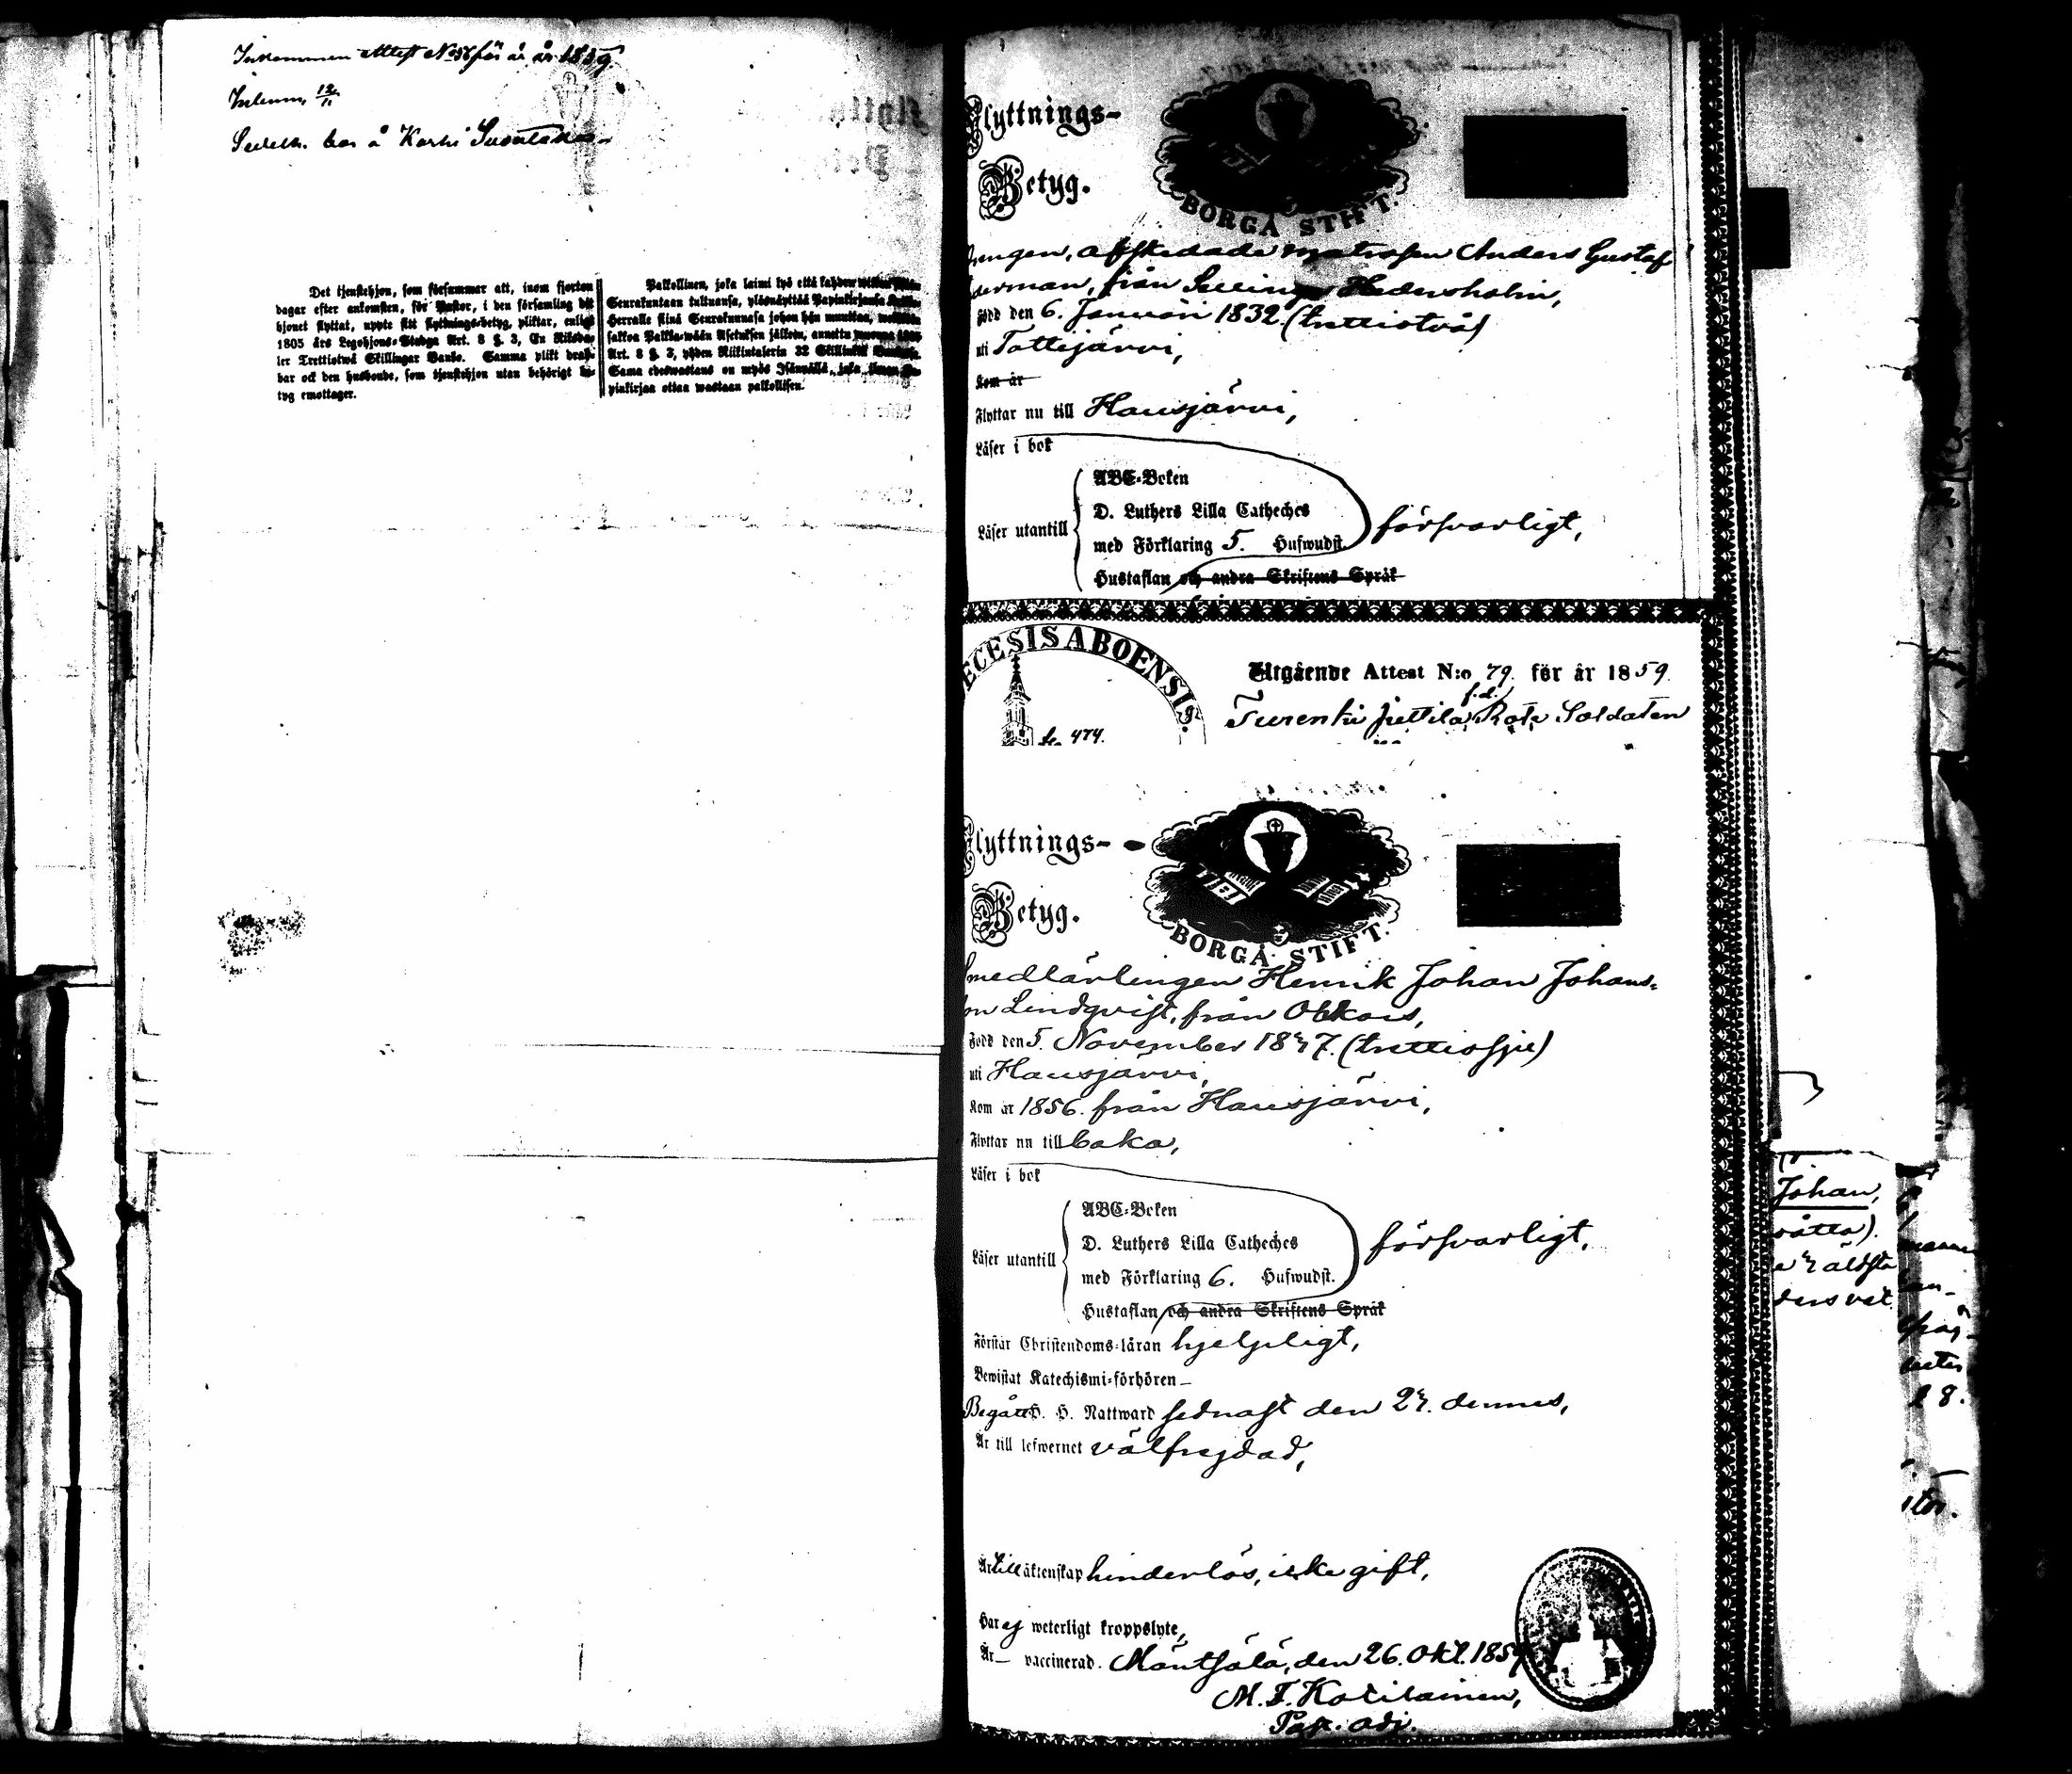 Inkommen Attest No 56 för år 1859.
Inlemn. 12/11
Det tjenstehjon, som försummar att, inom fjorton
dagar efter ankomsten, för Pastor, i den församling dit
hjonet flyttat, uppte sitt flyttnings-betyg, pliktar, enligt
1805 års Legohjons-Stadga Art. 8 §. 3, En Riksda-
ler Trettiotwå Skillingar Banko. Samma plikt drab-
bar ock den husbonde, som tjenstehjon utan behörigt be-
tyg emottager.
Palkollinen, joka laimi lyö että kahden wiikon
Seurakuntaan tultuansa, yläsnäyttää Papinkirjansa
Herralle siinä Seurakunnasa johon hän muuttaa,
sakkoa Palkka-wään Asetuksen jälkeen, annettu wuonna 1805
Art. 8 §. 3, yhden Riikintalerin 32 Skillinkiä
Sama edeswastaus on myös Isännällä, joka ilman Pa-
pinkirjaa ottaa wastaan palkollisen.
Flyttnings-
Betyg.
BORGÅ STIFT.
Drengen, afskedade matrosen Anders Gustaf
från
Född den 6. Januari 1832. (trettiotvå)
uti Tottijärvi,
Kom år
Flyttar nu till Hausjärvi,
Läser i bok
ABC-Boken
D. Luthers Lilla Catheches
Läser utantill
med Förklaring 5. Hufwudst.
försvarligt,
Hustaflan och andra Skriftens Språk
ECESIS ABOENSIS.
474.
Utgående Attest N:o 79. för år 1859.
f.d.
Turenki Juttila Rote Soldaten
Flyttnings-
Betyg.
BORGÅ STIFT.
Smedlärlingen Henrik Johan Johans-
son Lindqvist, från Ohkois,
Född den 5. November 1837. (trettiosju)
uti Hausjärvi,
Kom år 1856. från Hausjärvi,
Flyttar nu till baka,
Läser i bok
ABC-Boken
D. Luthers Lilla Catheches
Läser utantill
med Förklaring 6. Hufwudst.
försvarligt,
Hustaflan och andra Skriftens Språk
Förstår Christendoms-läran hjelpligt,
Bewistat Katechismi-förhören —
Begått H. H. Nattward sednast den 23. dennes,
Är till lefwernet välfrejdad,
Är till äktenskap hinderlös, icke gift,
Har ej weterligt kroppslyte,
Är — vaccinerad. Mäntsälä, den 26. Okt. 1859.
M. F. Kotilainen,
Past. adj.
Johan,
äldsta
28.